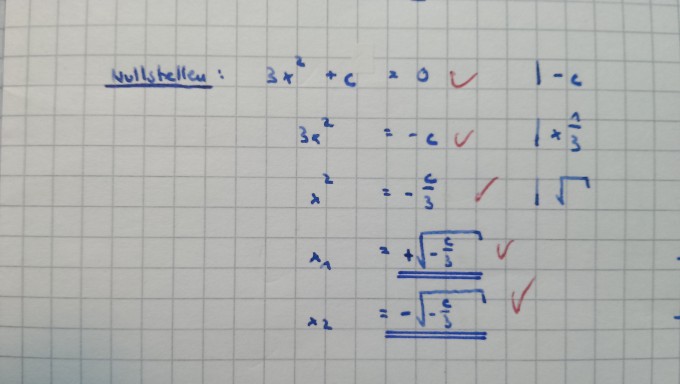 Nullstellen: 3x² + c = 0 ✓ | - c
3x² = - c ✓ | * 1/3
x² = - c/3 ✓ | √
x₁ = +√(- c/3) ✓
x₂ = -√(- c/3) ✓